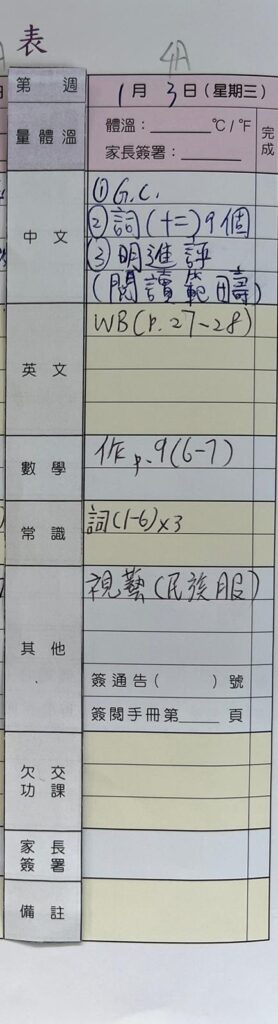 表
4A
第 週
1月3日(星期三)
量體溫
體溫:______℃/℉
家長簽署:______
完成
中文
① G.C.
② 詞(十二)9個
③ 明進評
(閱讀範疇)
英文
WB(P.27-28)
數學
作 p.9(6-7)
常識
詞(1-6)×3
其他
視藝(民族服)
簽通告( )號
簽閱手冊第____頁
欠交功課
家長簽署
備註